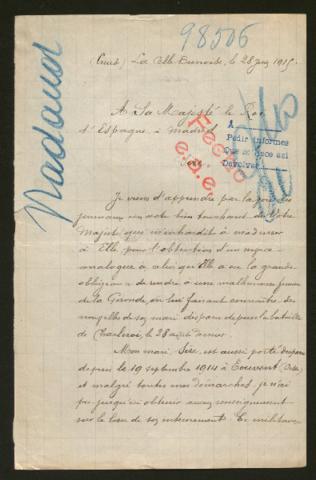 98506
Nadaud
(Creuse) La Celle Dunoise, le 28 juin 1915
A Sa Majesté le Roi
d'Espagne, à Madrid
A
Pedir informes
Que se dice así
Devolver
Fecho
Sire,
Je viens d'apprendre par la voie des
journaux un acte bien touchant de Votre
Majesté qui m'enhardit à m'adresser
à Elle pour l'obtention d'un service
analogue à celui qu'Elle a eu la grande
obligeance de rendre à une malheureuse femme
de la Gironde, en lui faisant connaître des
nouvelles de son mari disparu depuis la bataille
de Charleroi, le 28 août dernier.
Mon mari, Sire, est aussi porté disparu
depuis le 19 septembre 1914 à Touvent (Oise)
et malgré toutes mes démarches, je n'ai
pu jusqu'ici obtenir aucun renseignement
sur le lieu de son internement. Ce militaire